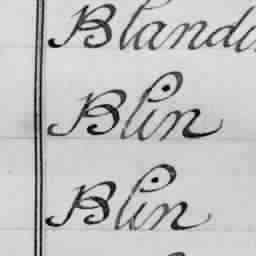 Blandi
Blin
Blin